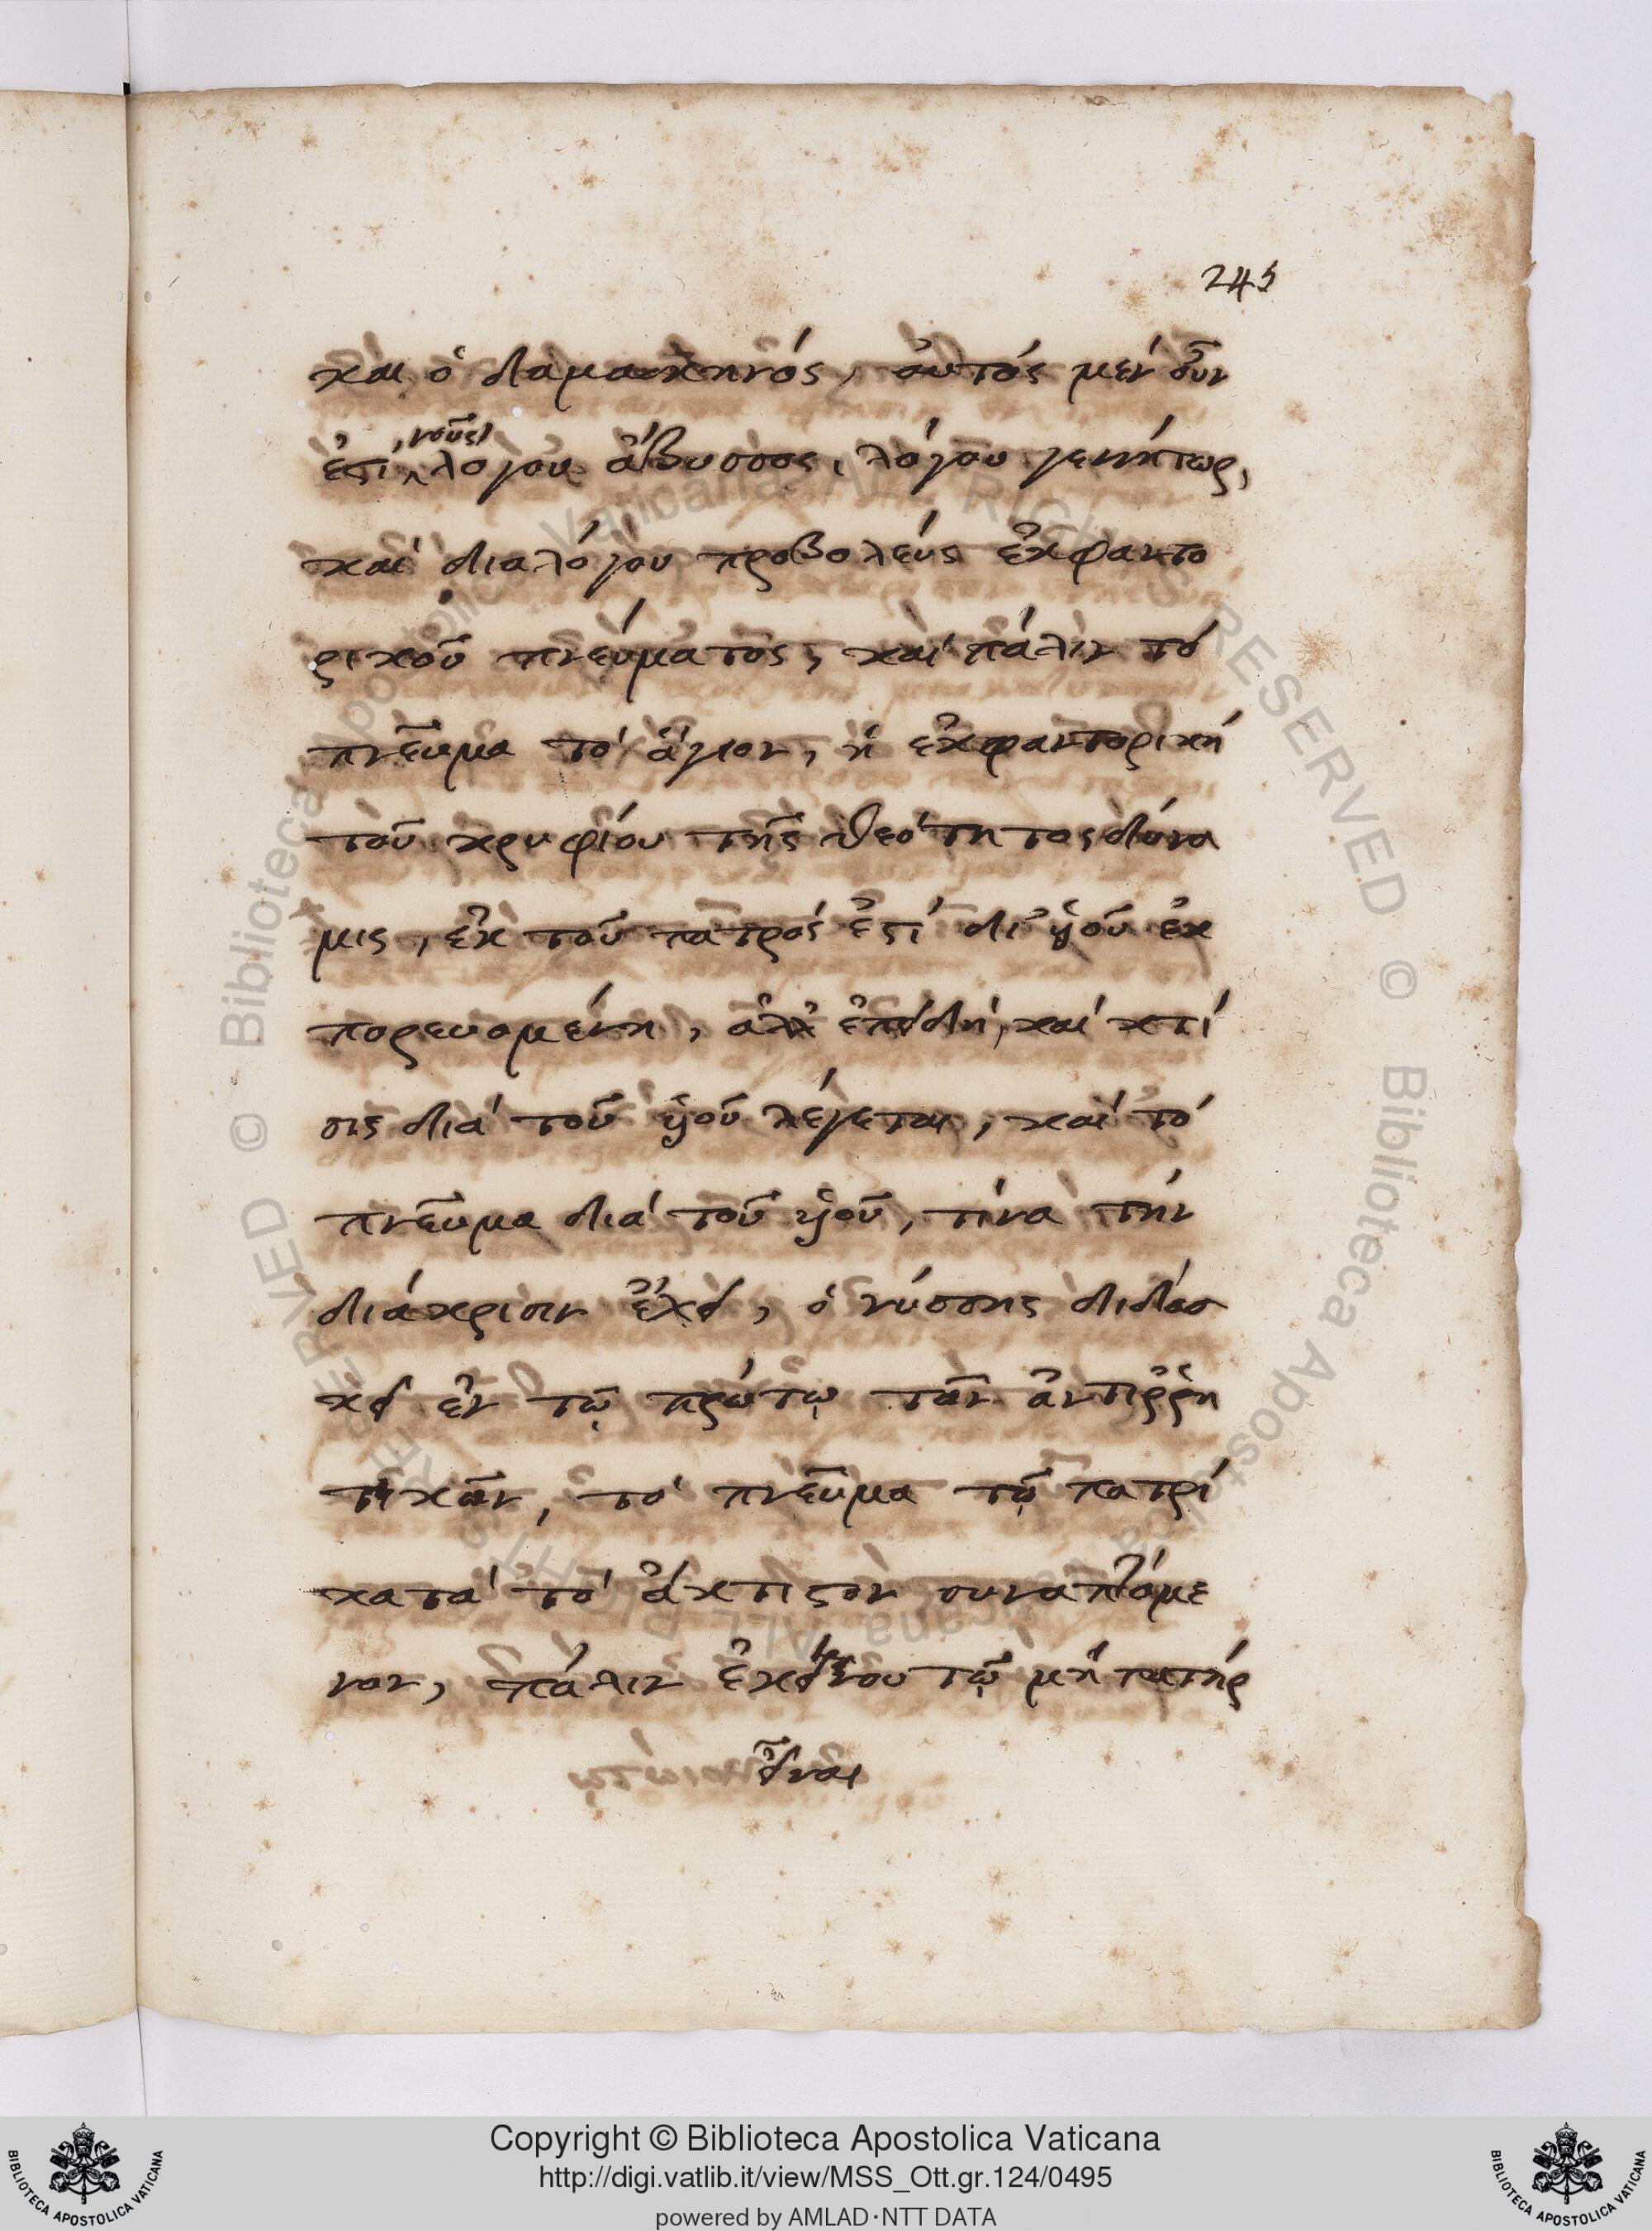 245
καὶ ὁ δαμασκηνός, αὐτός μέν οὖν
ἐστί νοῦς λόγου ἄβυσσος, λόγου γεννήτωρ,
καί διαλόγου προβολεύς ἐκφαντο
ρικοῦ πνεύματος, καί πάλιν τό
πνεῦμα τό ἅγιον, ἡ ἐκφαντορικὴ
τοῦ κρυφίου τῆς θεότητος δύνα
μις, ἐκ τοῦ πατρός ἐστί δι' ὑιοῦ ἐκ
πορευομένη, ἀλλ' ἐπειδή, καί κτί
σις διά τοῦ ὑιοῦ λέγεται, καί τό
πνεῦμα διά τοῦ ὑιοῦ, τίνα τήν
διάκρισιν ἔχει, ὁ νύσσης διδάσ
κει ἐν τῷ πρώτῳ τῶν ἀντιῤῥη
τικῶν, τό πνεῦμα τῷ πατρί
κατά τό ἄκτιστον συναπτόμε
νον, πάλιν ἐκείνου τῷ μή πατήρ
εἶναι
Copyright © Biblioteca Apostolica Vaticana
http://digi.vatlib.it/view/MSS_Ott.gr.124/0495
powered by AMLAD·NTT DATA
BIBLIOTECA APOSTOLICA VATICANA
BIBLIOTECA APOSTOLICA VATICANA
© Biblioteca Apostolica Vaticana ALL RIGHTS RESERVED
© Biblioteca Apostolica Vaticana ALL RIGHTS RESERVED